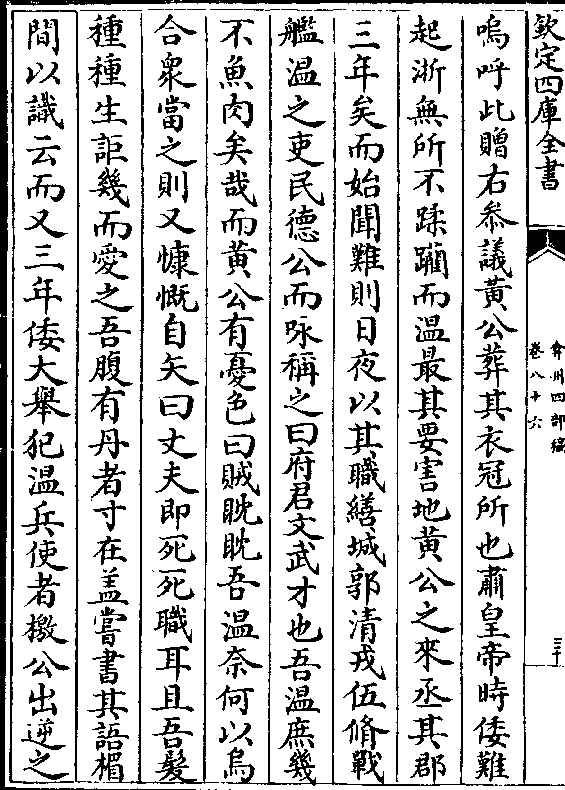 欽定四庫全書
弇州四部稿
卷八十六
三十
嗚呼此贈右叅議黃公葬其衣冠所也肅皇帝時倭難
起浙無所不蹂躪而温最其要害地黃公之來丞其郡
三年矣而始聞難則日夜以其職繕城郭清戎伍脩戰
艦温之吏民德公而咏稱之曰府君文武才也吾温庶幾
不魚肉矣哉而黃公有憂色曰賊眈眈吾温奈何以烏
合衆當之則又慷慨自矢曰丈夫即死死職耳且吾髮
種種生詎幾而愛之吾腹有丹者寸在盖嘗書其語楣
間以識云而又三年倭大舉犯温兵使者檄公出逆之